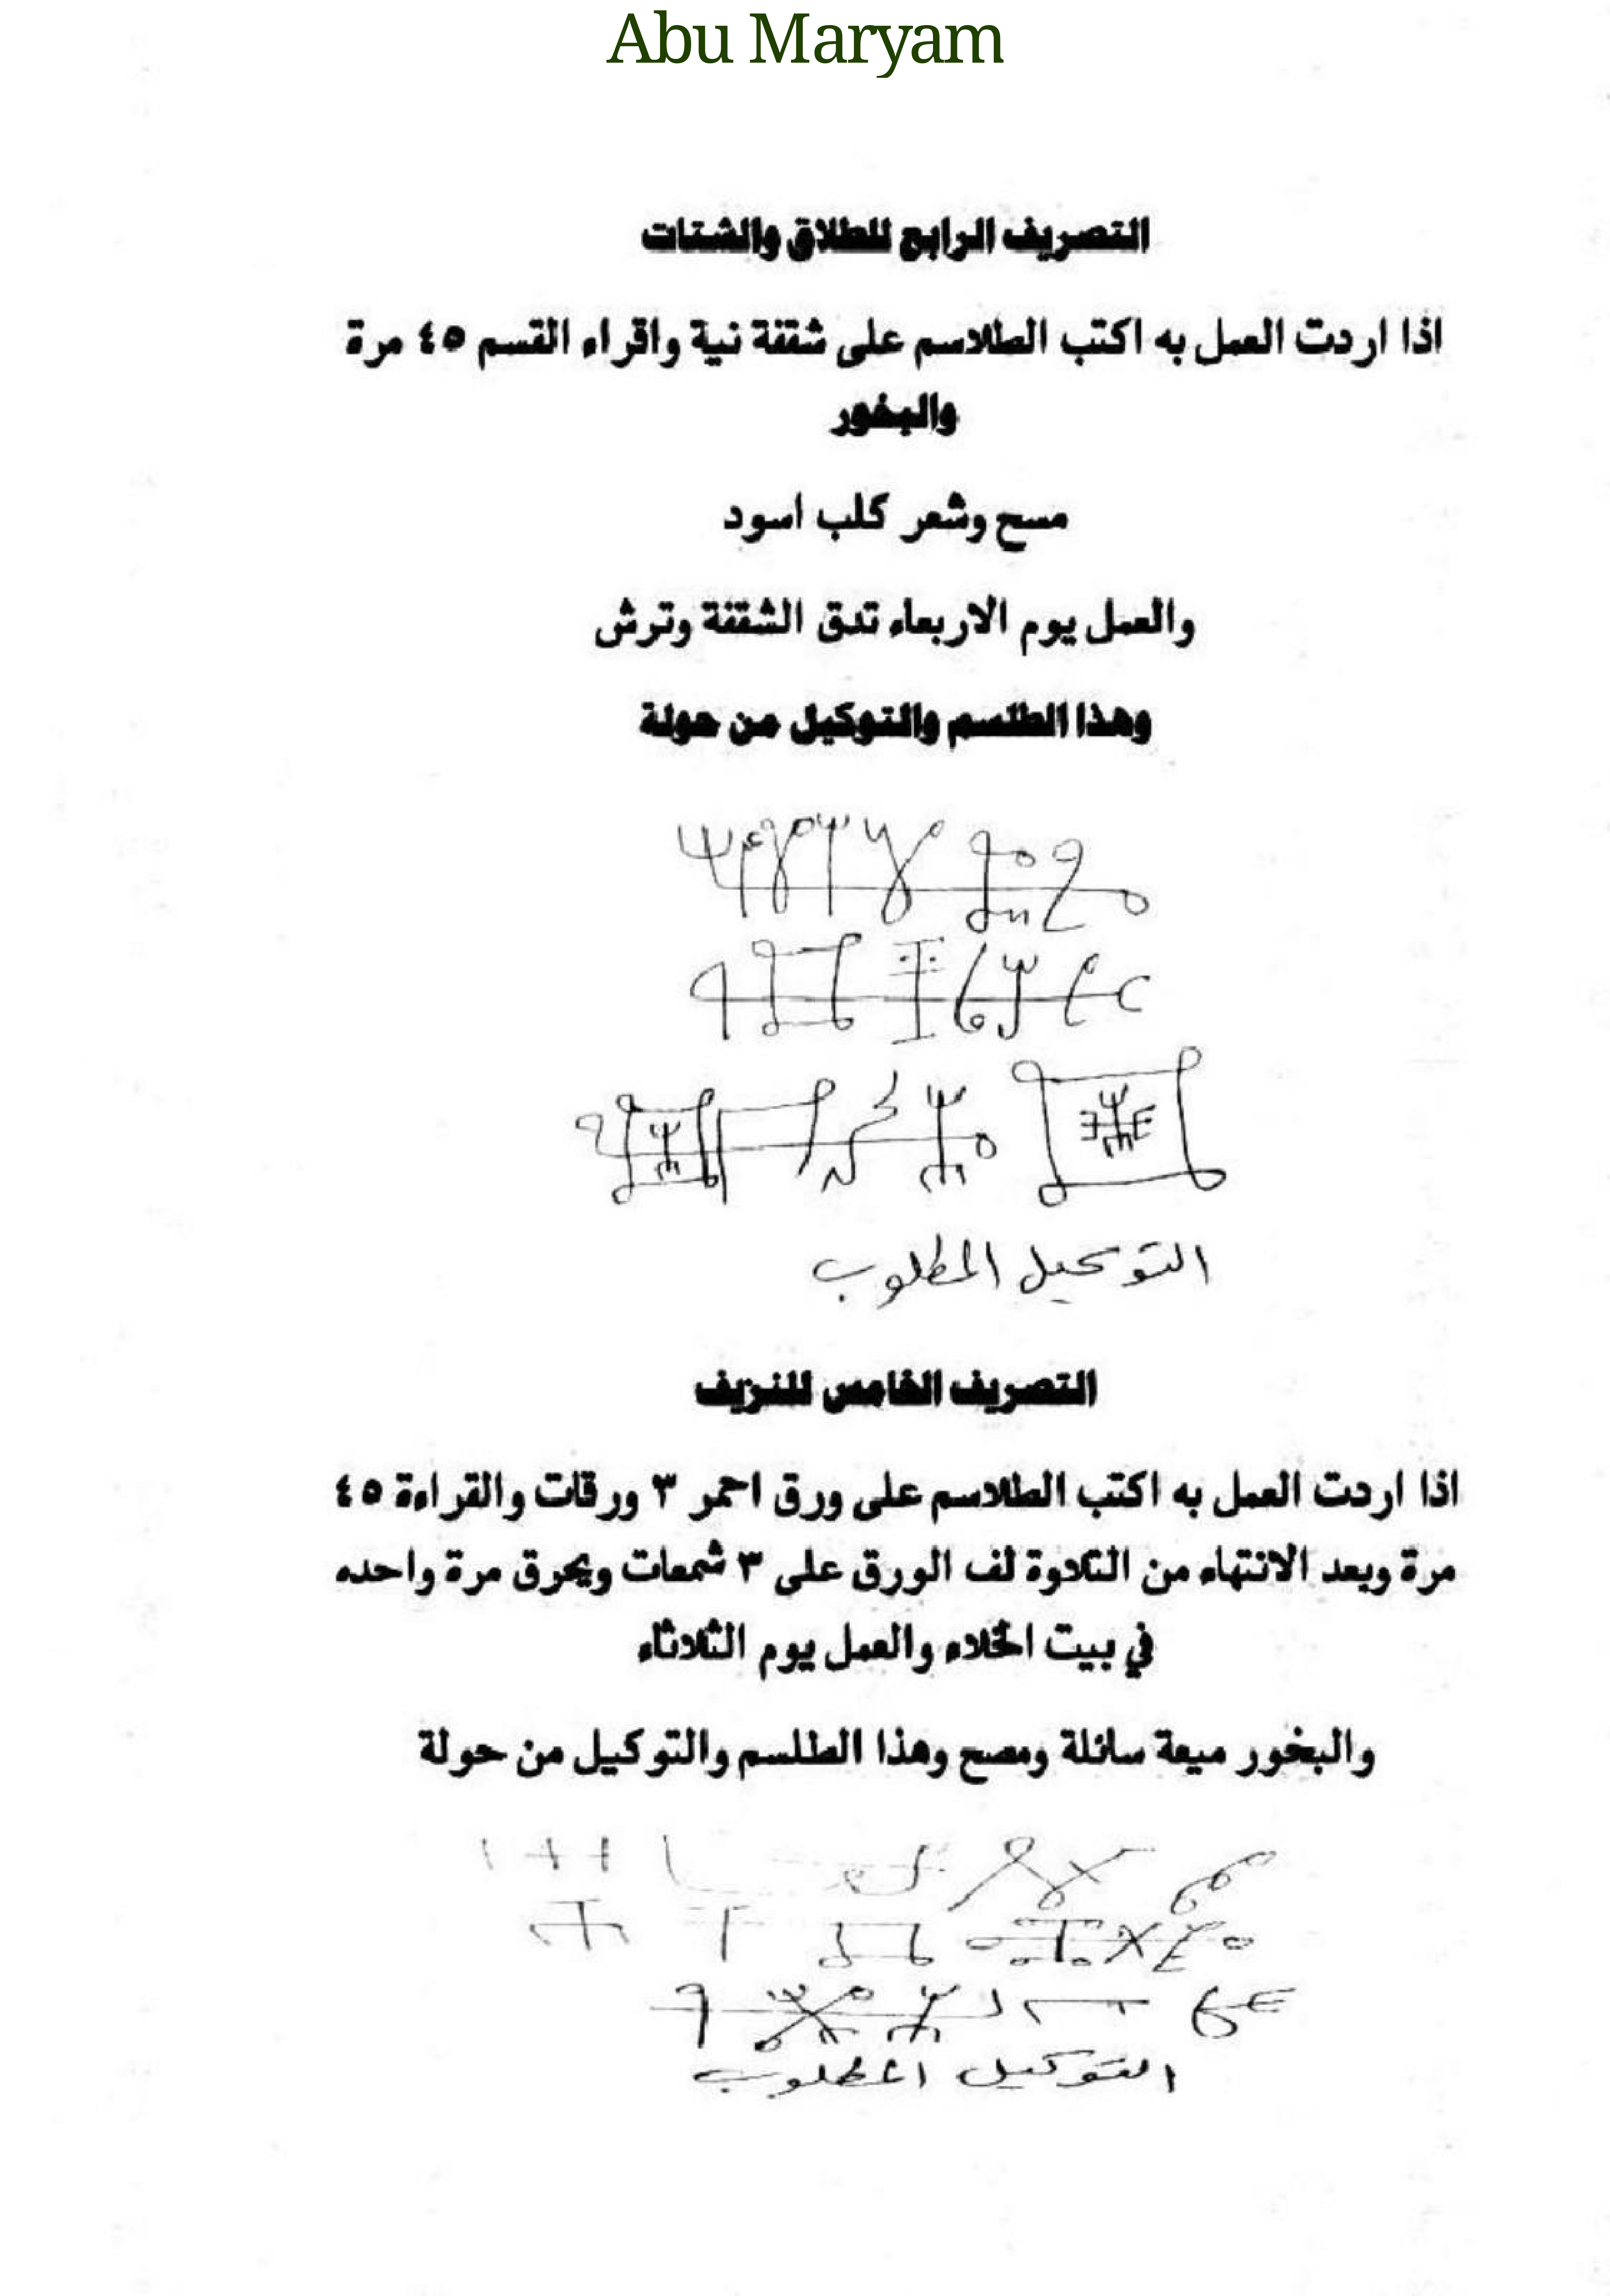 Abu Maryam
التصريف الرابع للطلاق والشتات
اذا اردت العمل به اكتب الطلاسم على شقفة نية واقراء القسم ٤٥ مرة
والبخور
مسح وشعر كلب اسود
والعمل يوم الاربعاء تدق الشقفة وترش
وهذا الطلسم والتوكيل من حولة
التوكيل المطلوب
التصريف الخامس للنزيف
اذا اردت العمل به اكتب الطلاسم على ورق احمر ٣ ورقات والقراءة ٤٥
مرة وبعد الانتهاء من التلاوة لف الورق على ٣ شمعات ويحرق مرة واحده
في بيت الخلاء والعمل يوم الثلاثاء
والبخور ميعة سائلة ومصح وهذا الطلسم والتوكيل من حولة
التوكيل المطلوب